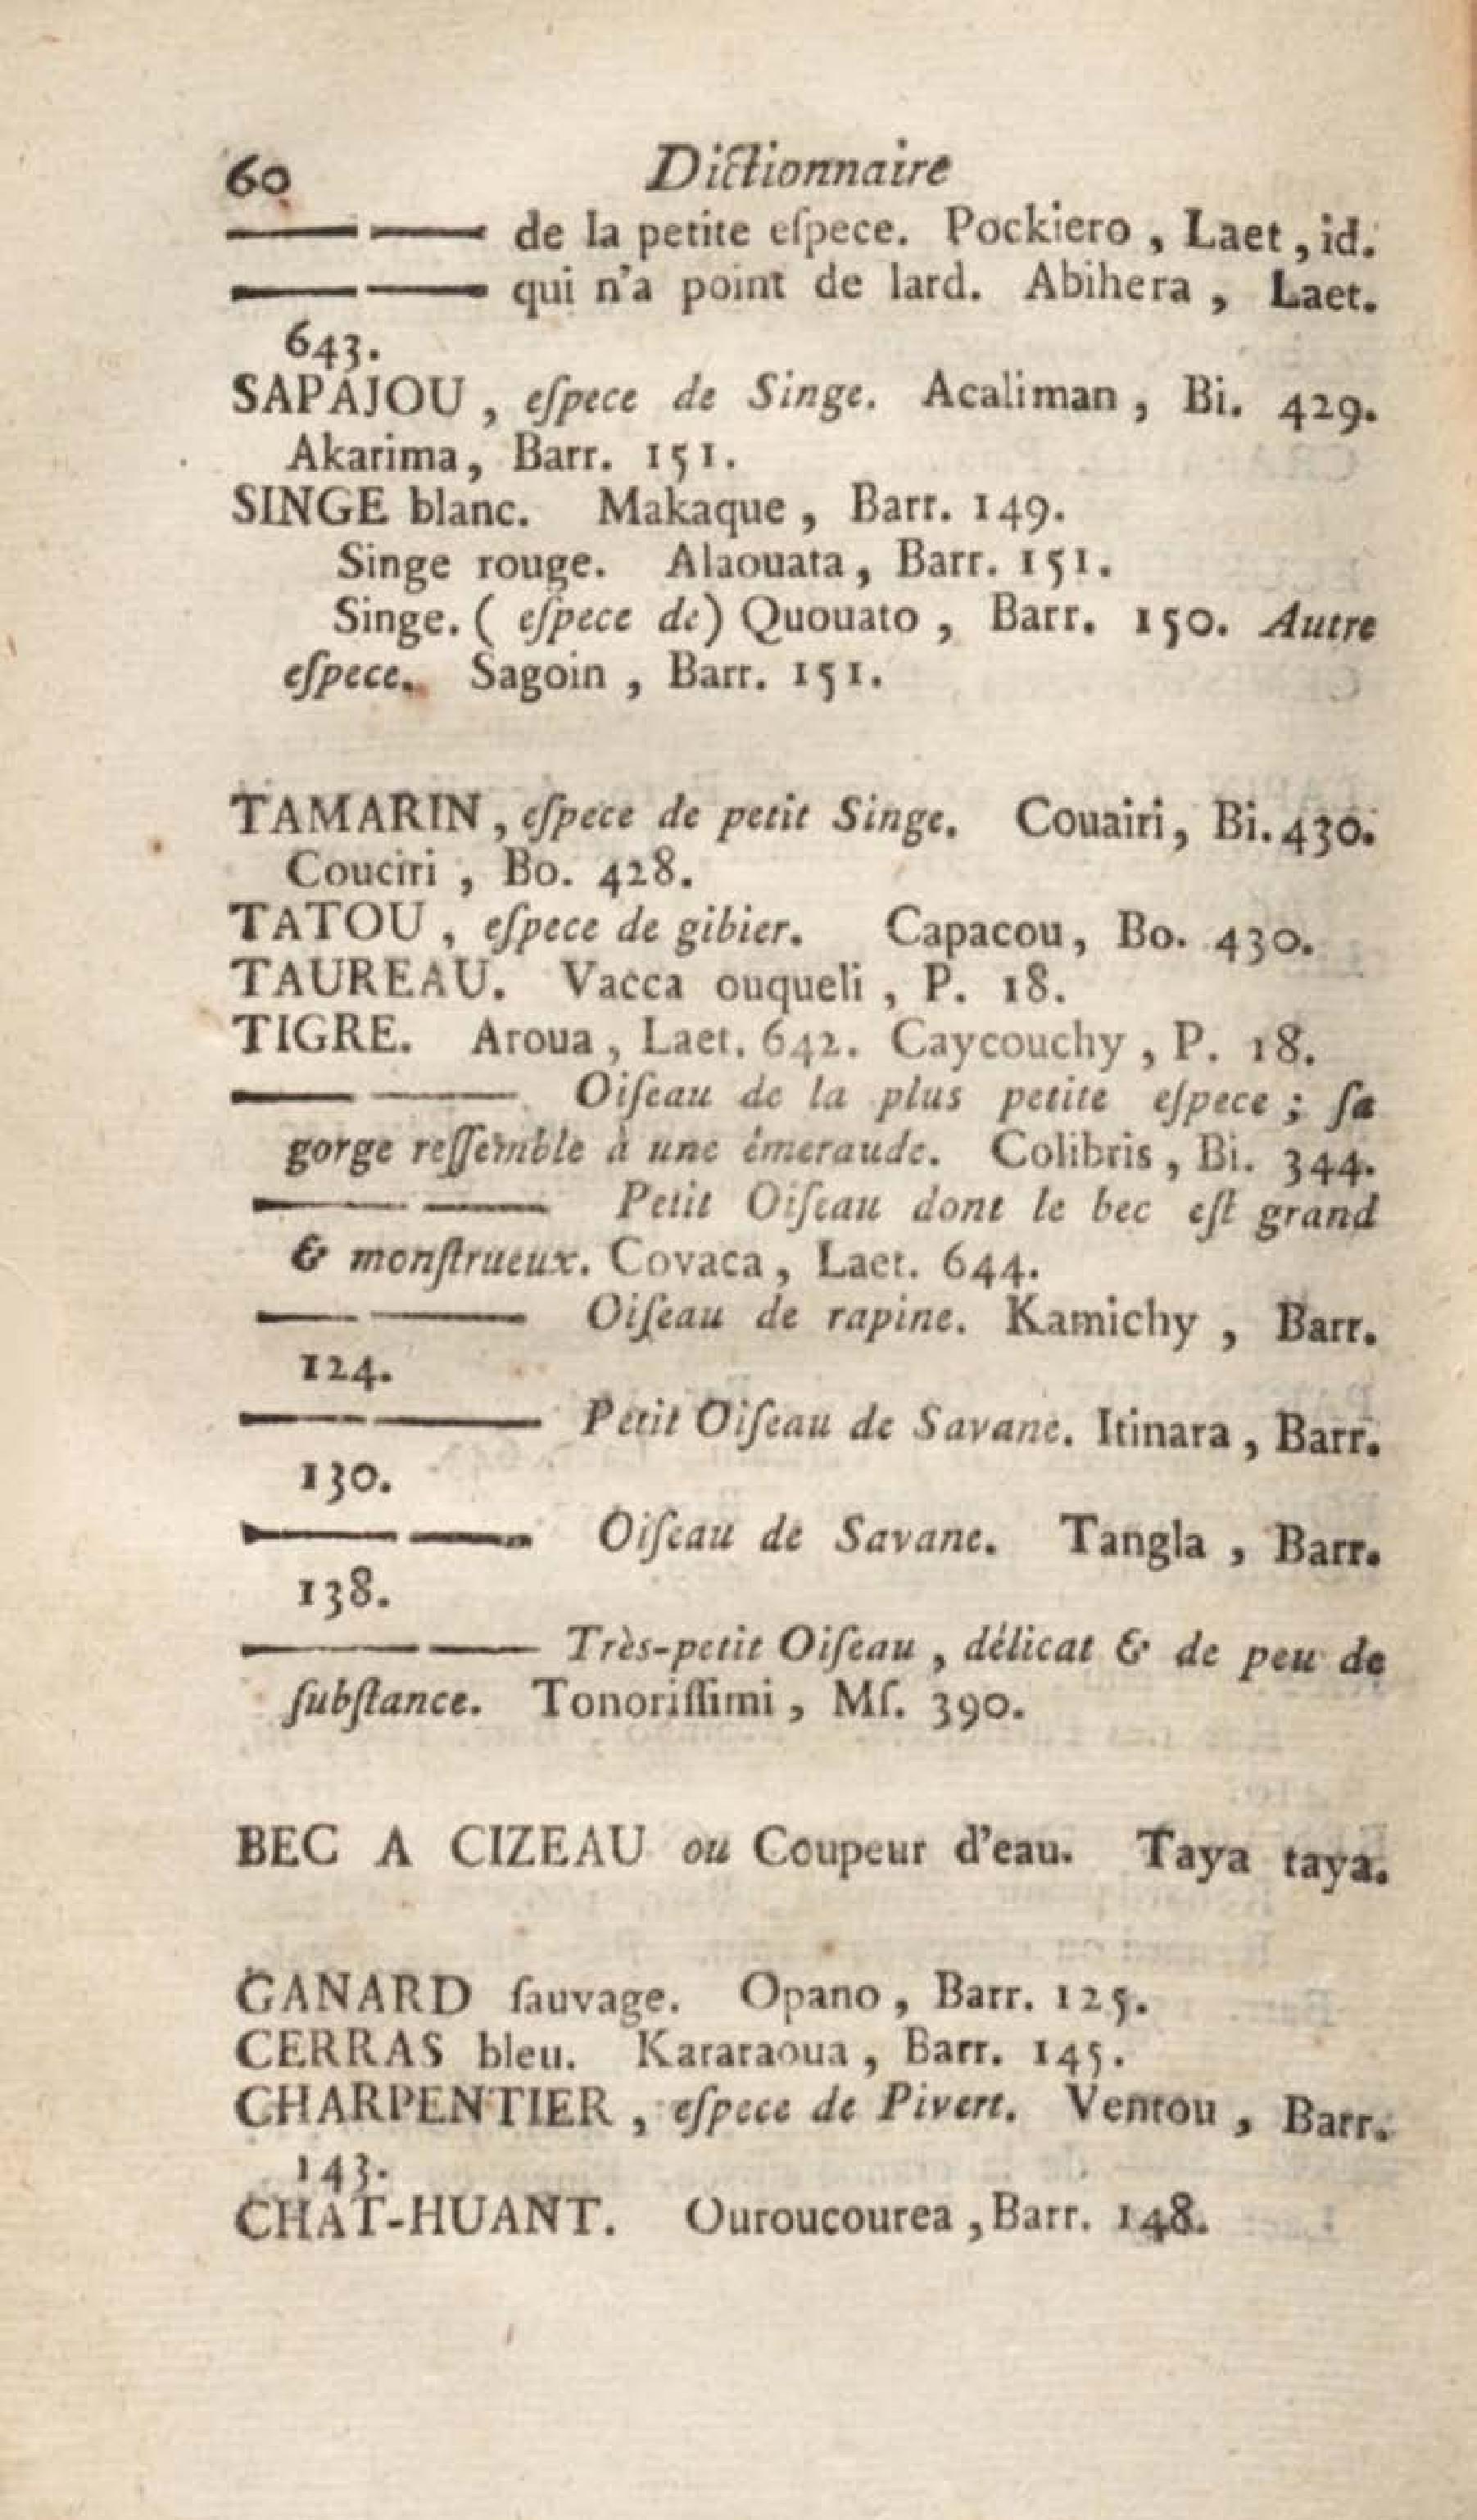 60 Dictionnaire
—— —— de la petite eſpece. Pockiero, Laet, id.
—— —— qui n'a point de lard. Abihera, Laet.
643.
SAPAJOU, eſpece de Singe. Acaliman, Bi. 429.
Akarima, Barr. 151.
SINGE blanc. Makaque, Barr. 149.
Singe rouge. Alaouata, Barr. 151.
Singe. (eſpece de) Quouato, Barr. 150. Autre
eſpece. Sagoin, Barr. 151.
TAMARIN, eſpece de petit Singe. Couairi, Bi. 430.
Couciri, Bo. 428.
TATOU, eſpece de gibier. Capacou, Bo. 430.
TAUREAU. Vacca ouqueli, P. 18.
TIGRE. Aroua, Laet. 642. Caycouchy, P. 18.
—— —— Oiſeau de la plus petite eſpece; ſa
gorge reſſemble à une émeraude. Colibris, Bi. 344.
—— —— Petit Oiſeau dont le bec eſt grand
& monſtrueux. Covaca, Laet. 644.
—— —— Oiſeau de rapine. Kamichy, Barr.
124.
—— —— Petit Oiſeau de Savane. Itinara, Barr.
130.
—— —— Oiſeau de Savane. Tangla, Barr.
138.
—— —— Très-petit Oiſeau, délicat & de peu de
ſubſtance. Tonoriſſimi, Mſ. 390.
BEC A CIZEAU ou Coupeur d'eau. Taya taya.
CANARD ſauvage. Opano, Barr. 125.
CERRAS bleu. Kararaoua, Barr. 145.
CHARPENTIER, eſpece de Pivert. Ventou, Barr.
143.
CHAT-HUANT. Ouroucourea, Barr. 148.